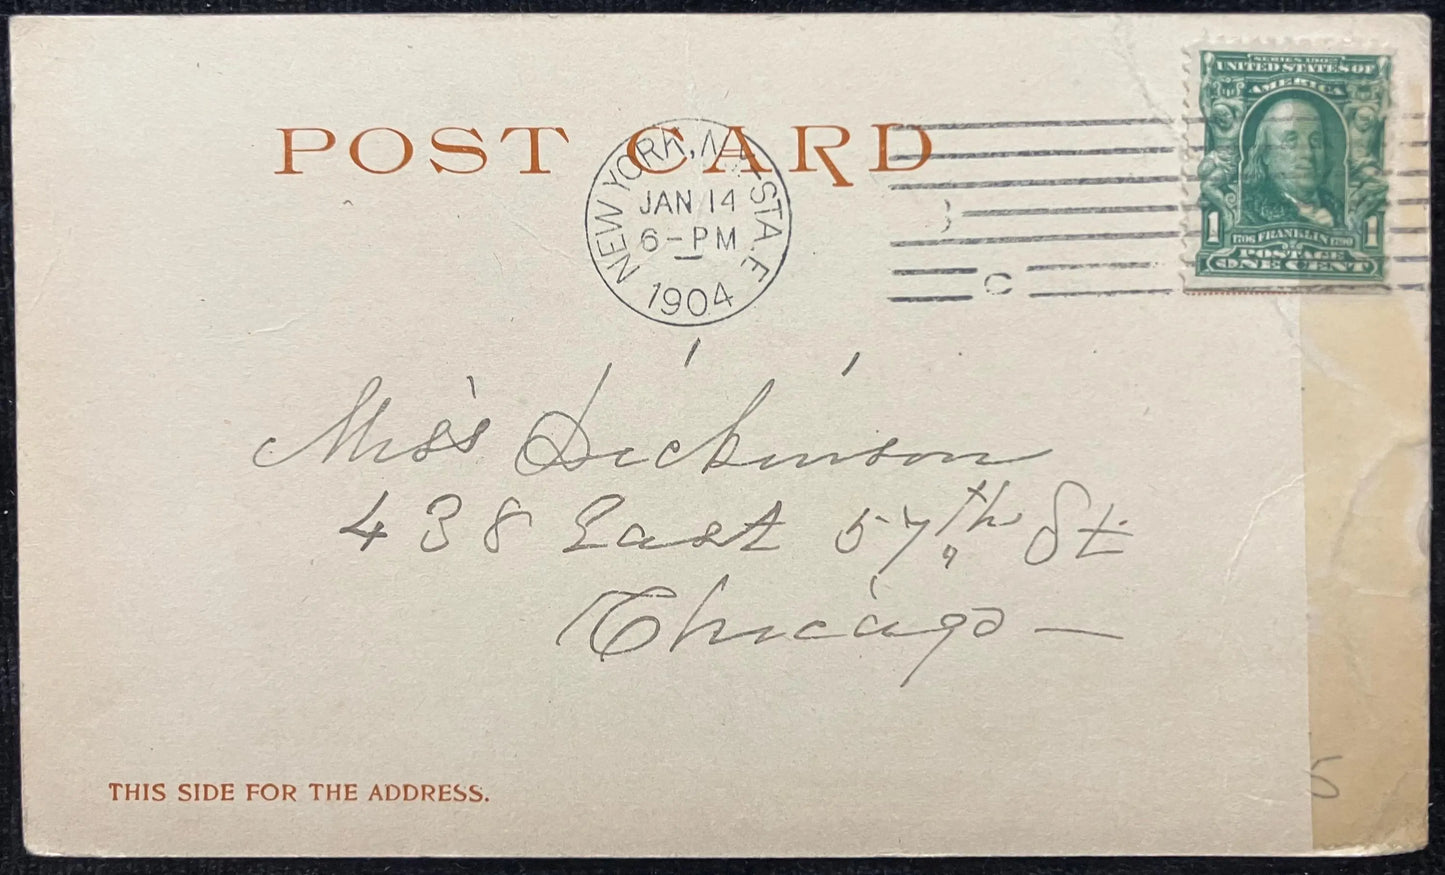 POST CARD
NEW YORK, N.Y. STA. F.
JAN 14
6-PM
1904
C
SERIES 1902
UNITED STATES OF
AMERICA
1 1706 FRANKLIN 1790 1
POSTAGE
ONE CENT
Miss Dickinson
438 East 57th St
Chicago —
THIS SIDE FOR THE ADDRESS.
5